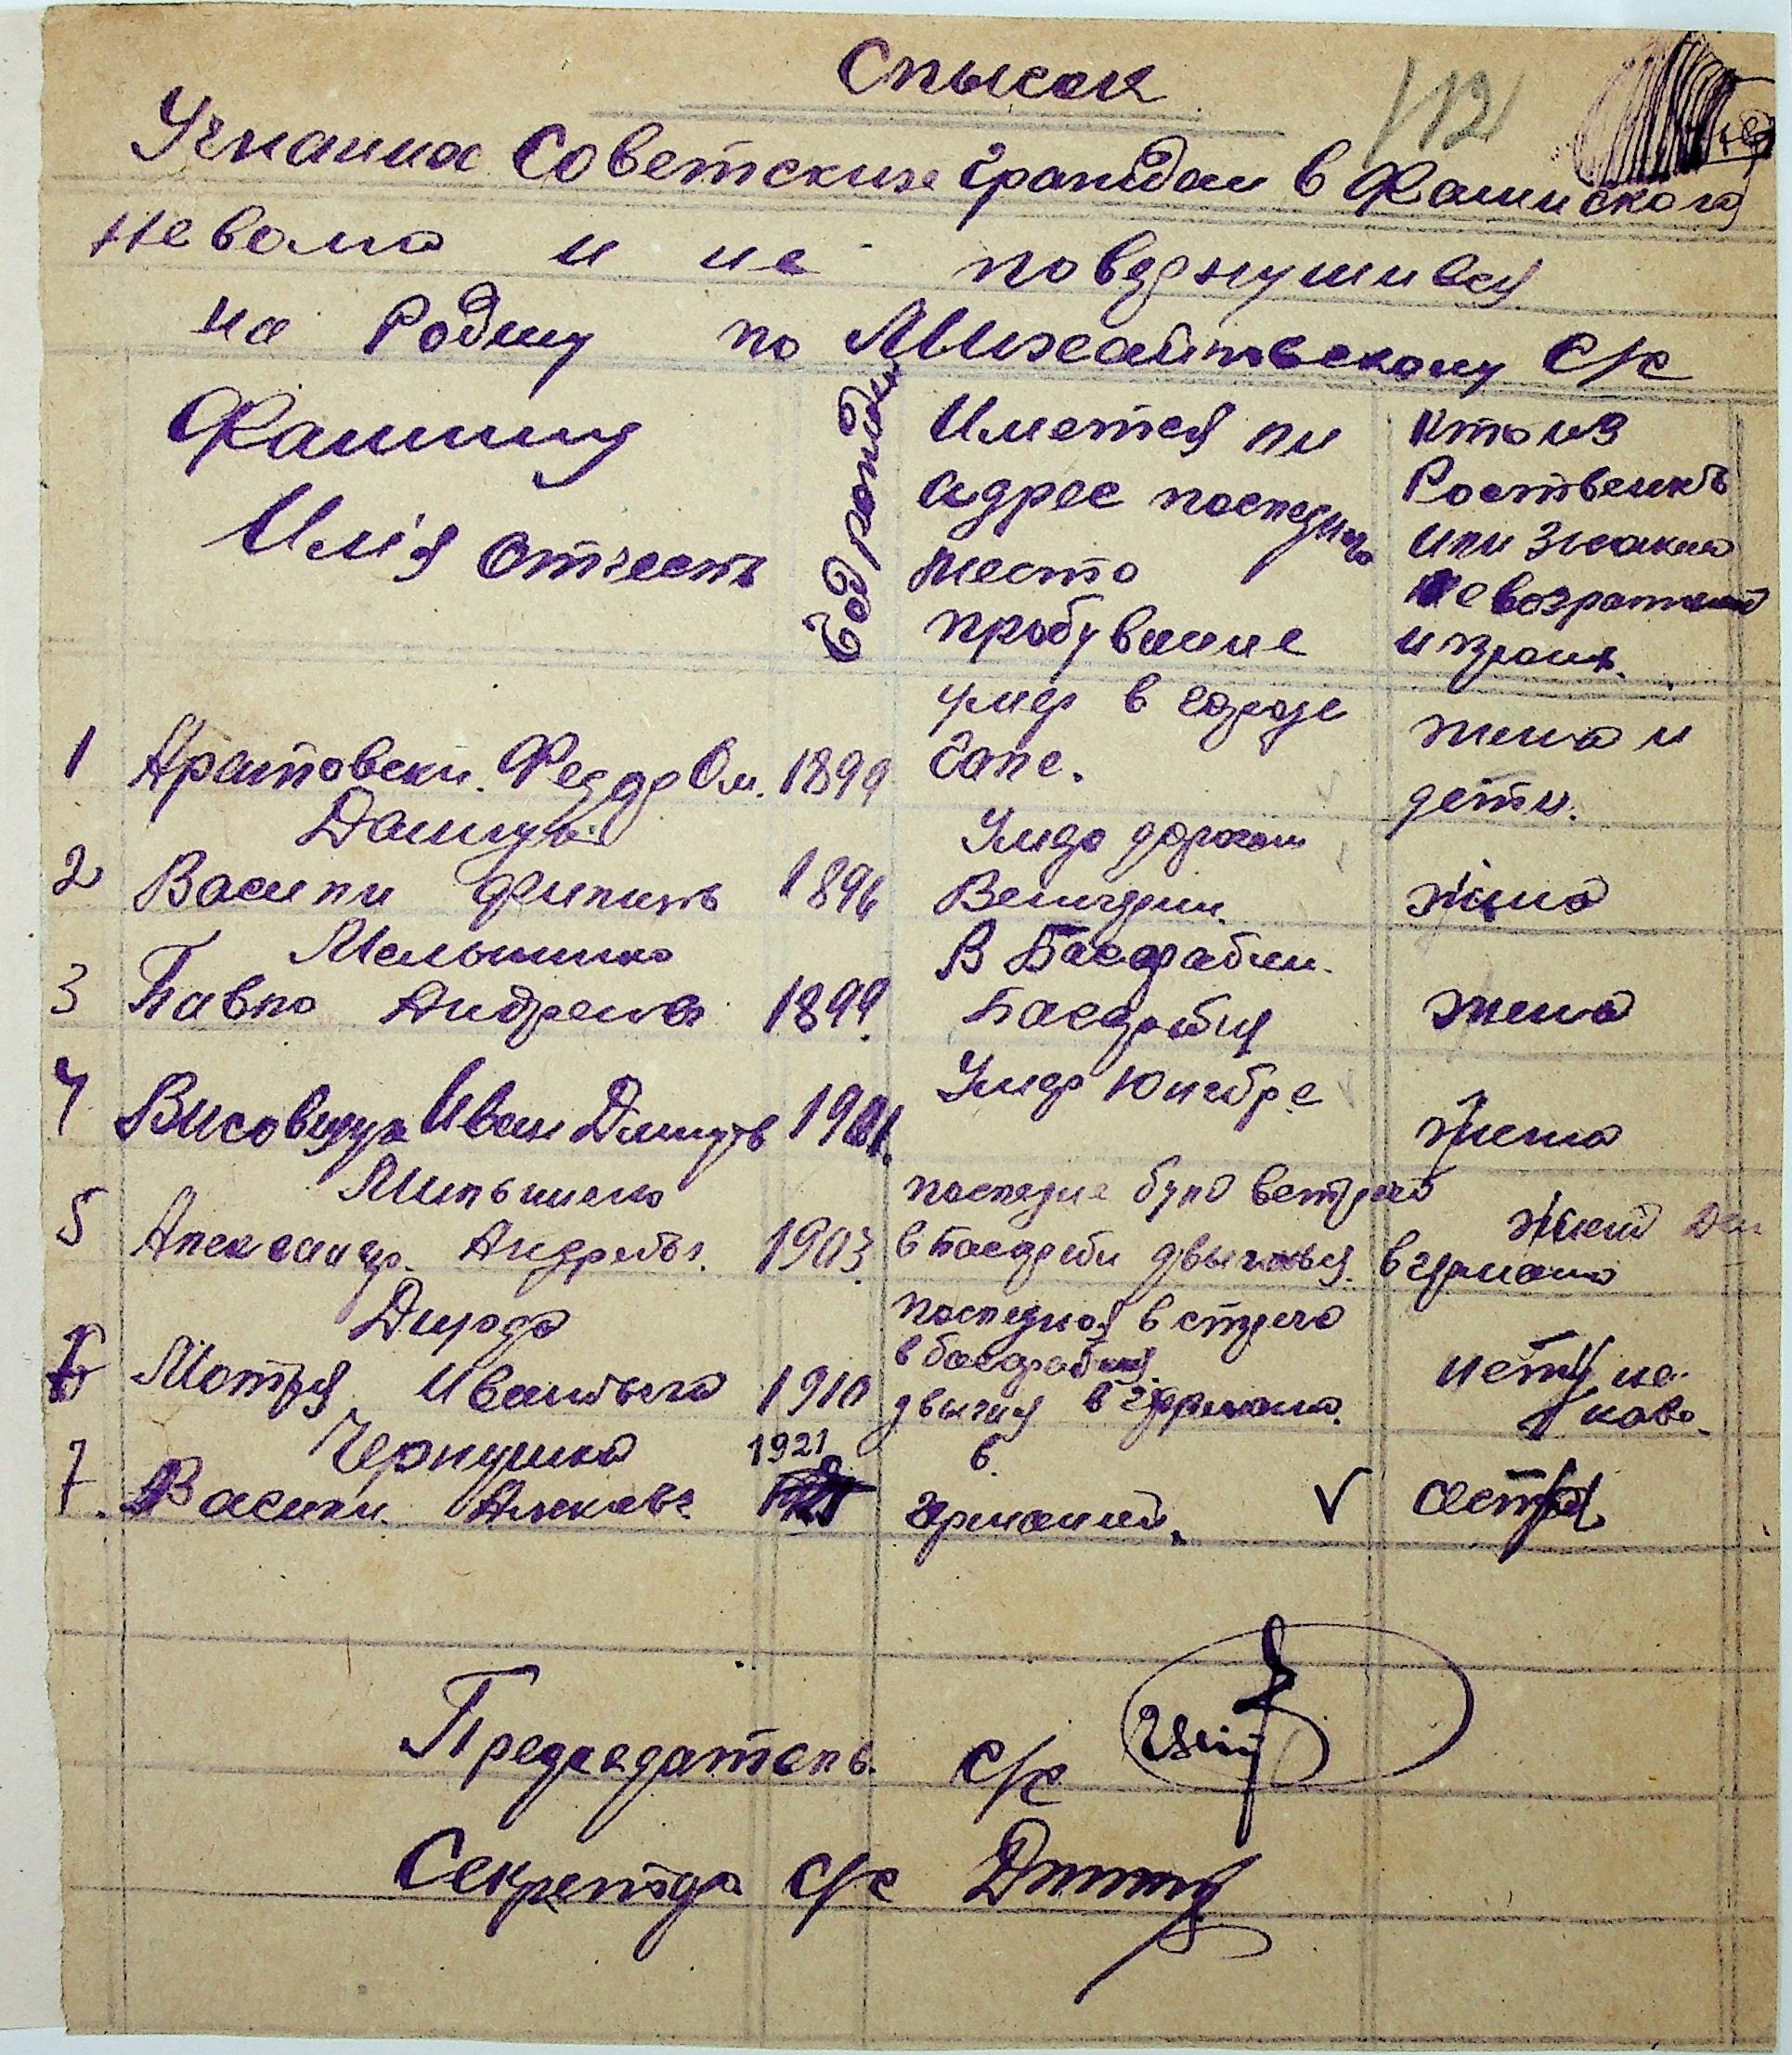 Спысок
112
Угнаних Советских граждан в Фашиского
невола и не поверхнушився
на Родину по Михайловскому С/с
Фамилиу
Имья Отчесть
Год рожден
Имется ли
адрес последнего
место
пробувание
Кто из
Роственикъ
или знакма
не возратний
израит.
1 Аратовски. Федор Ом. 1899
умер в городе
Гапе.
жена и
дети.
Данилув
2 Васили Филипить 1896
Умер дорогои
Венгрии.
жина
Мельнико
3 Павло Андреива 1899.
В Басарабии.
Басарабия
жена
4 Висовщук Иван Дмитр 1901.
Умер Юнгебре
жена
Мильнико
5 Александр. Андрейв. 1903.
последне було встреча
в Басараби двыгався. в германю
жена
Дирда
6 Мотря Ивановна 1910
последноя встреча
в басарабия.
двигия в германию.
нету не
каво.
Чернушко
7. Васили. 1921
в.
германией.
V сестра
Председатель. с/с
Секретар с/с